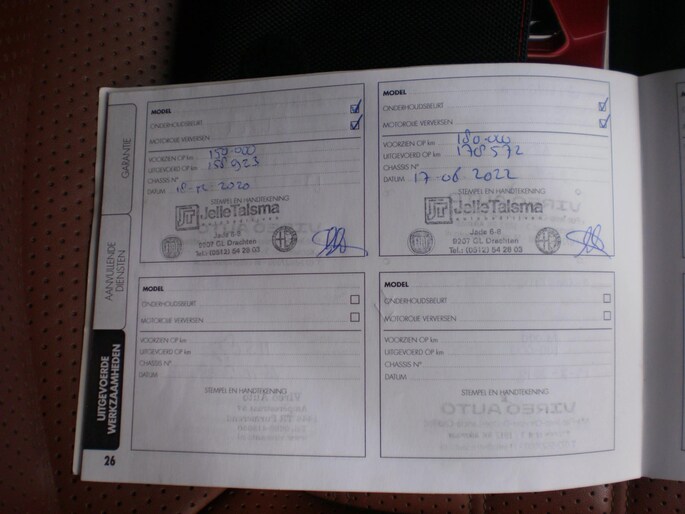 GARANTIE
AANVULLENDE
DIENSTEN
UITGEVOERDE
WERKZAAMHEDEN
26
MODEL
ONDERHOUDSBEURT
MOTOROLIE VERVERSEN
VOORZIEN OP km
UITGEVOERD OP km 158923
CHASSIS N°
DATUM 18-12 2020
STEMPEL EN HANDTEKENING
JT JelleTalsma
Jade 6-8
9207 GL Drachten
Tel.: (0512) 54 28 03
MODEL
ONDERHOUDSBEURT
MOTOROLIE VERVERSEN
VOORZIEN OP km 180.000
UITGEVOERD OP km 178572
CHASSIS N°
DATUM 17-06-2022
STEMPEL EN HANDTEKENING
JT JelleTalsma
Jade 6-8
9207 GL Drachten
Tel.: (0512) 54 28 03
MODEL
ONDERHOUDSBEURT
MOTOROLIE VERVERSEN
VOORZIEN OP km
UITGEVOERD OP km
CHASSIS N°
DATUM
STEMPEL EN HANDTEKENING
MODEL
ONDERHOUDSBEURT
MOTOROLIE VERVERSEN
VOORZIEN OP km
UITGEVOERD OP km
CHASSIS N°
DATUM
STEMPEL EN HANDTEKENING